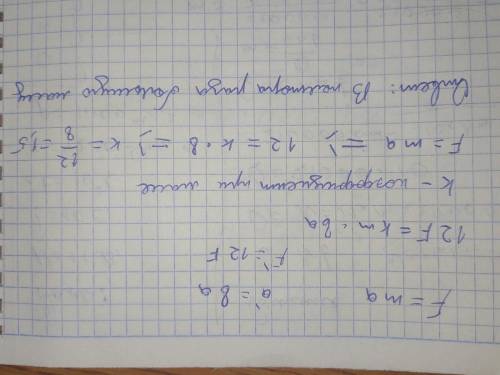 F = ma    a' = 8a
F' = 12F
12F = km · 8a
k - коэффициент при массе
F = ma => 12 = k · 8 => k = 12/8 = 1,5
Ответ: В полтора раза большую массу